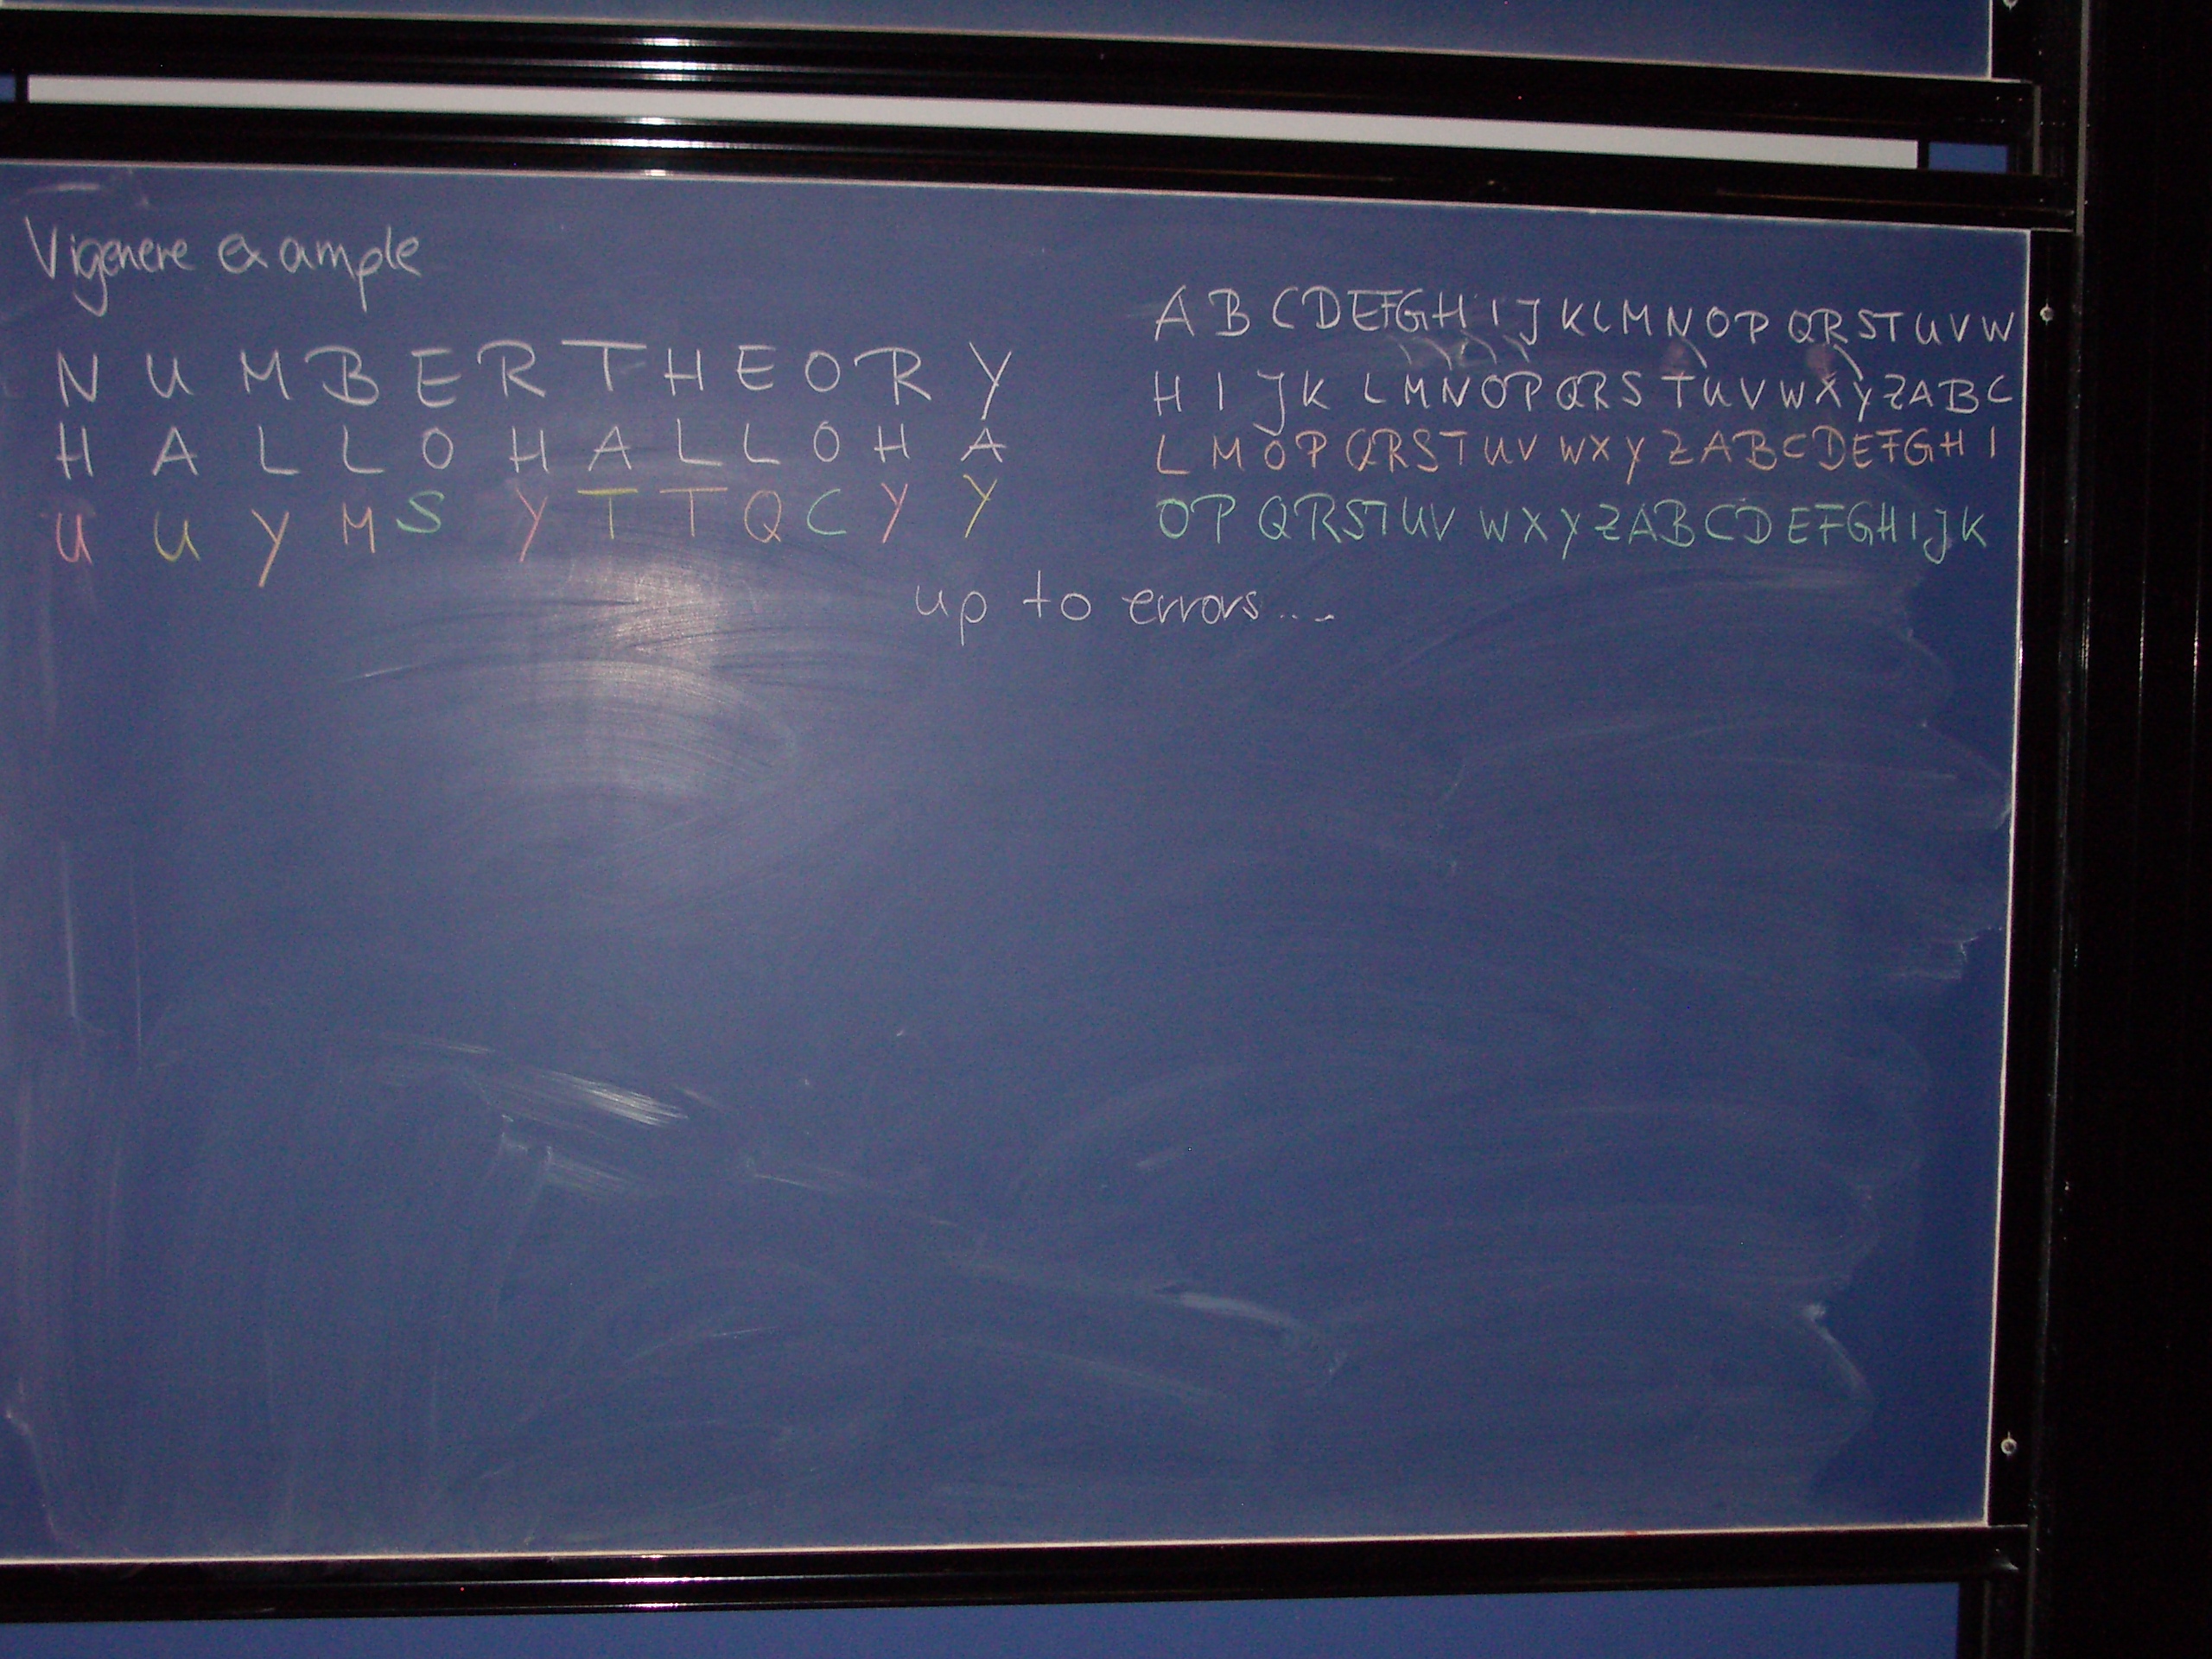 Vigenere example
N U M B E R T H E O R Y
H A L L O H A L L O H A
U U Y M S Y T T Q C Y Y
A B C D E F G H I J K L M N O P Q R S T U V W
H I J K L M N O P Q R S T U V W X Y Z A B C
L M O P Q R S T U V W X Y Z A B C D E F G H I
O P Q R S T U V W X Y Z A B C D E F G H I J K
up to errors...